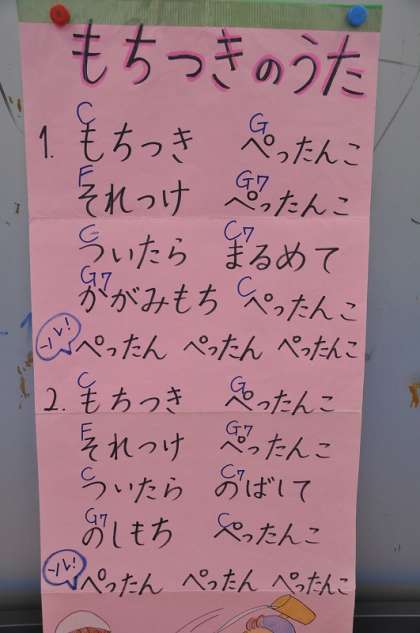 もちつきのうた
C G
1. もちつき ぺったんこ
F G7
それつけ ぺったんこ
C C7
ついたら まるめて
G7 C
かがみもち ぺったんこ
ソレ! ぺったん ぺったん ぺったんこ
C G
2. もちつき ぺったんこ
F G7
それつけ ぺったんこ
C C7
ついたら のばして
G7 C
のしもち ぺったんこ
ソレ! ぺったん ぺったん ぺったんこ